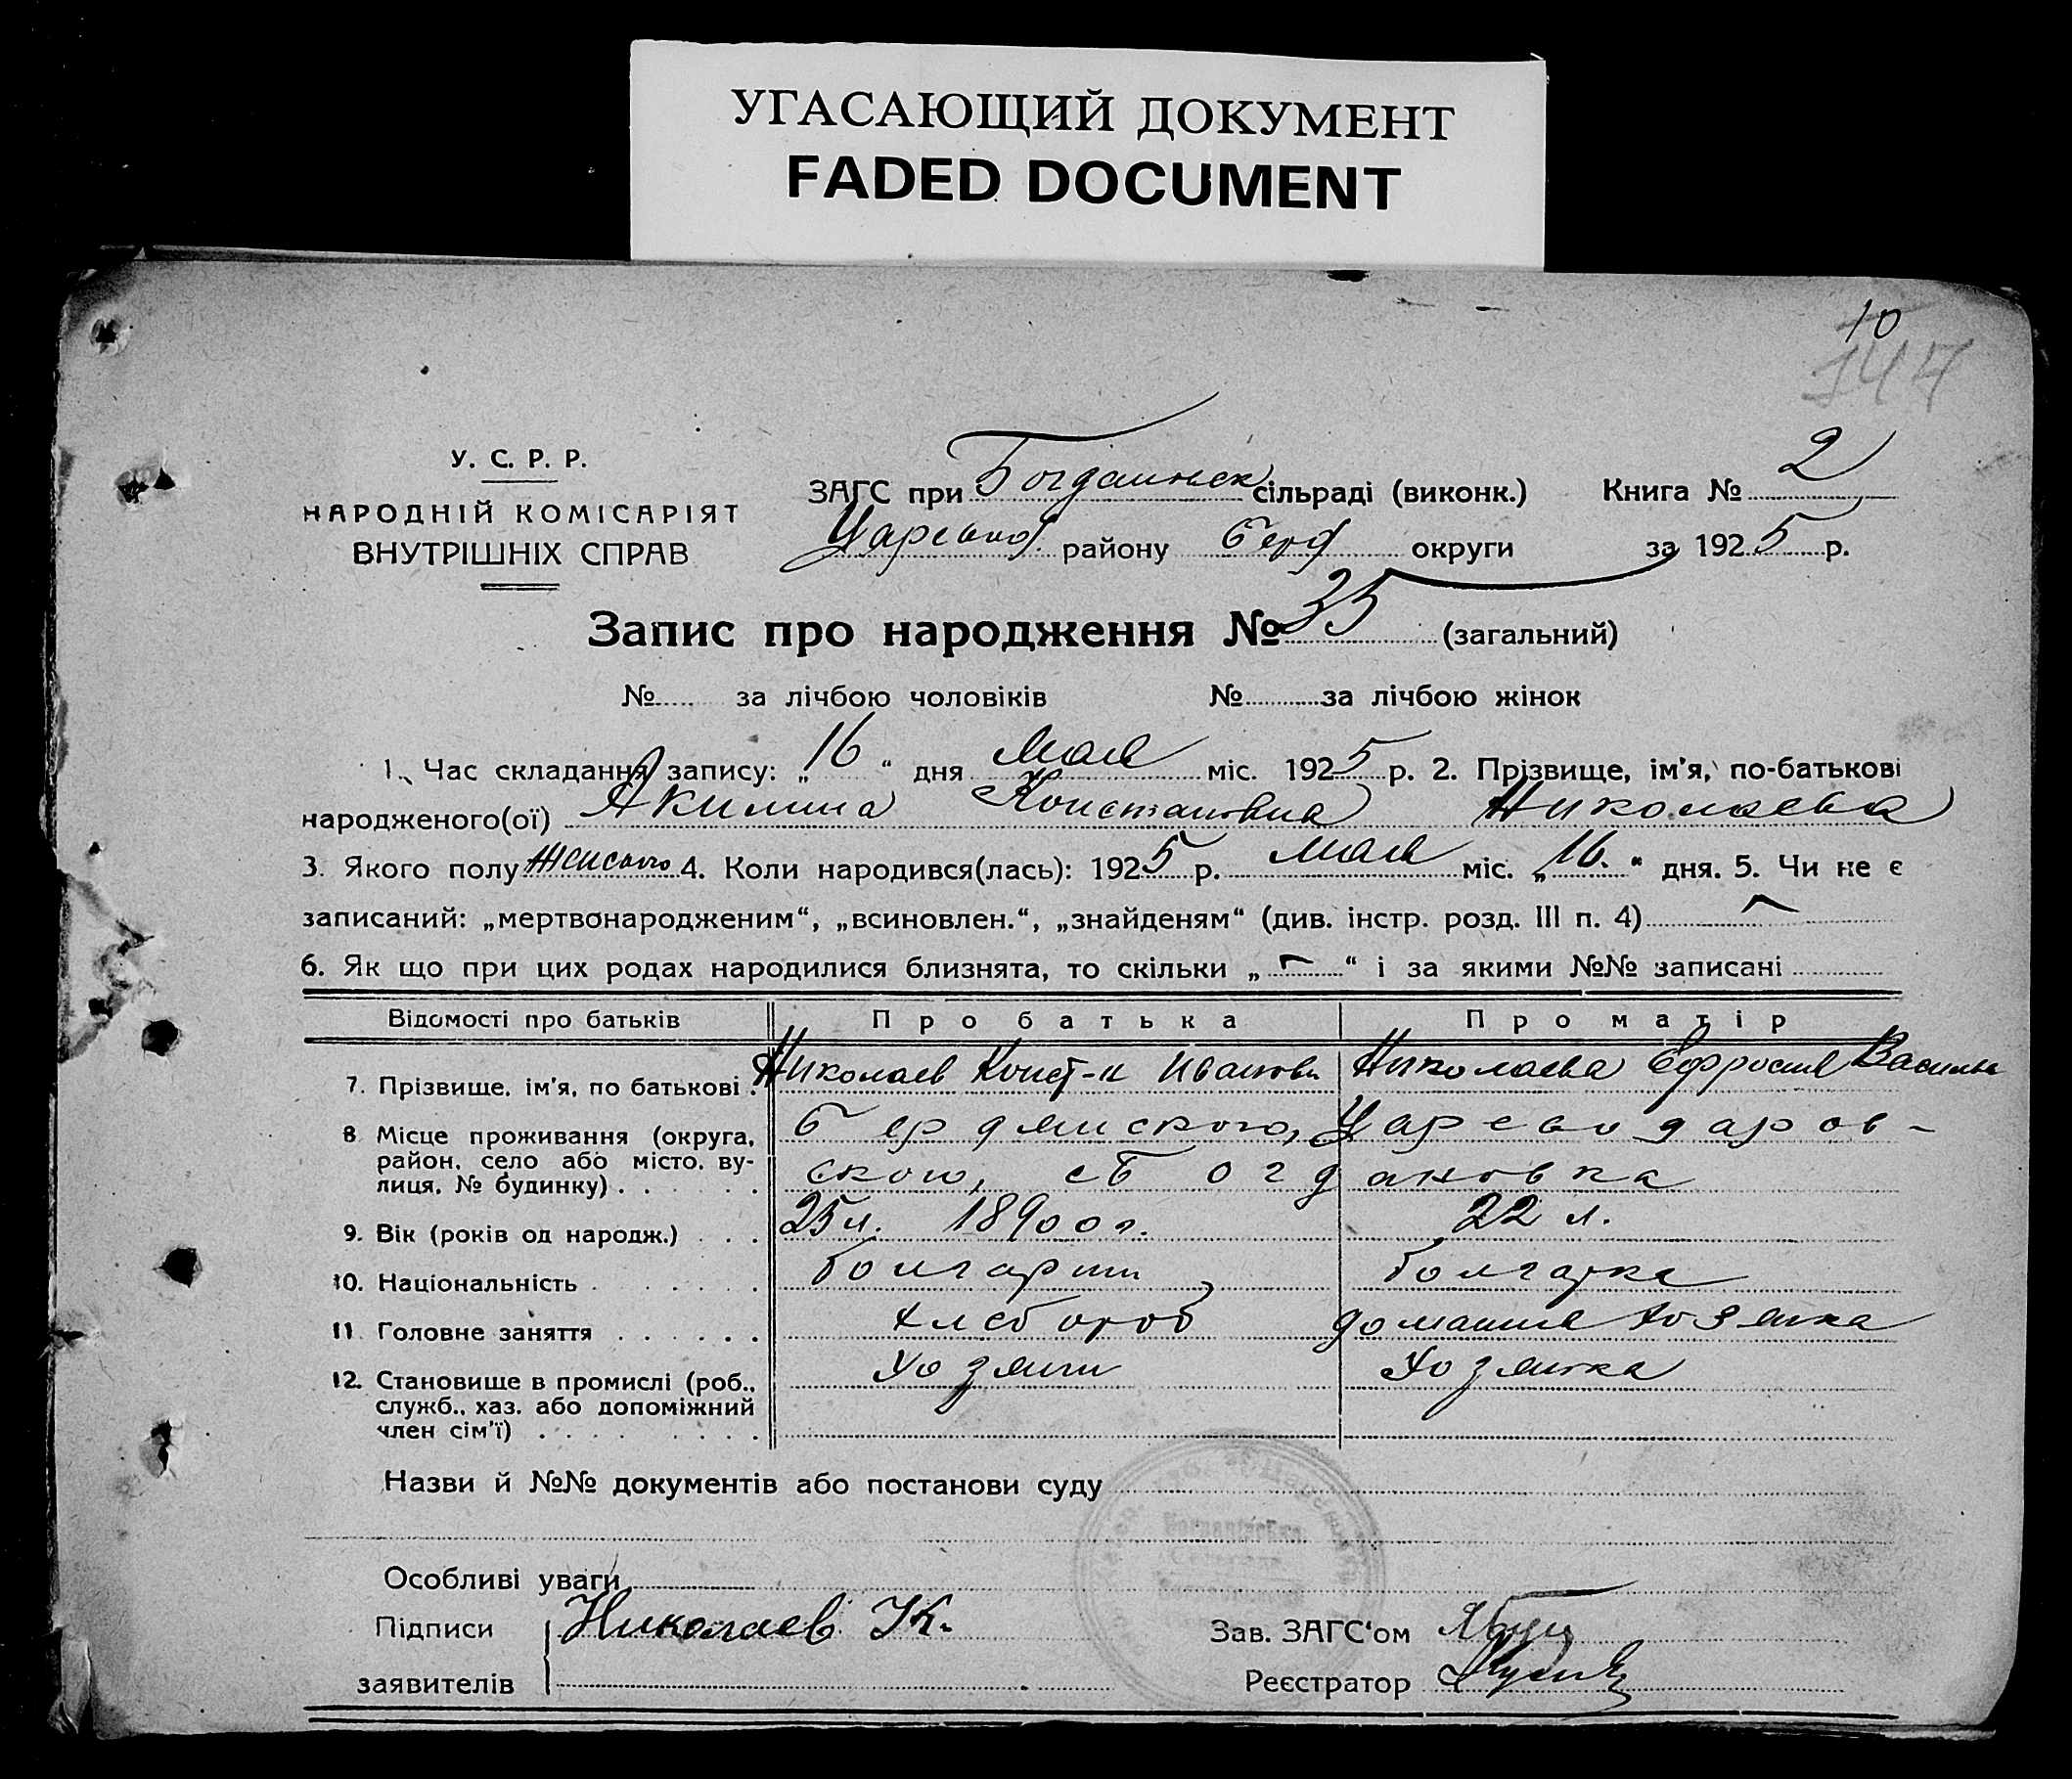 УГАСАЮЩИЙ ДОКУМЕНТ
FADED DOCUMENT
10
144
У. С. Р. Р.
НАРОДНІЙ КОМІСАРІЯТ
ВНУТРІШНІХ СПРАВ
ЗАГС при Богдановск сільраді (виконк.) Книга № 2
району Берд округи за 1925 р.
Запис про народження № 35 (загальний)
№ за лічбою чоловіків № за лічбою жінок
1. Час складання запису: „16“ дня Мая міс. 1925 р. 2. Прізвище, ім'я, по-батькові
народженого(ої) Акилина Константиновна Николаева
3. Якого полу Женского 4. Коли народився(лась): 1925 р. Мая міс. „16.“ дня. 5. Чи не є
записаний: „мертвонародженим“, „всиновлен.“, „знайденям“ (див. інстр. розд. III п. 4)
6. Як що при цих родах народилися близнята, то скільки „-“ і за якими №№ записані
Відомості про батьків Про батька Про матір
7. Прізвище, ім'я, по батькові Николаев Конст-н Иванови Николаева Ефросин Василье
8 Місце проживання (округа, Бердянского, Цареводаров-
район, село або місто, ву- ского, с Богдановка
лиця, № будинку)
9. Вік (років од народж.) 25 л. 1900 г. 22 л.
10. Національність болгарин болгарка
11 Головне заняття хлебороб домашня хозяйка
12. Становище в промислі (роб., Хозяин Хозяйка
служб., хаз. або допоміжний
член сім'ї)
Назви й №№ документів або постанови суду
Особливі уваги
Підписи Николаев К. Зав. ЗАГС'ом
заявителів Реєстратор